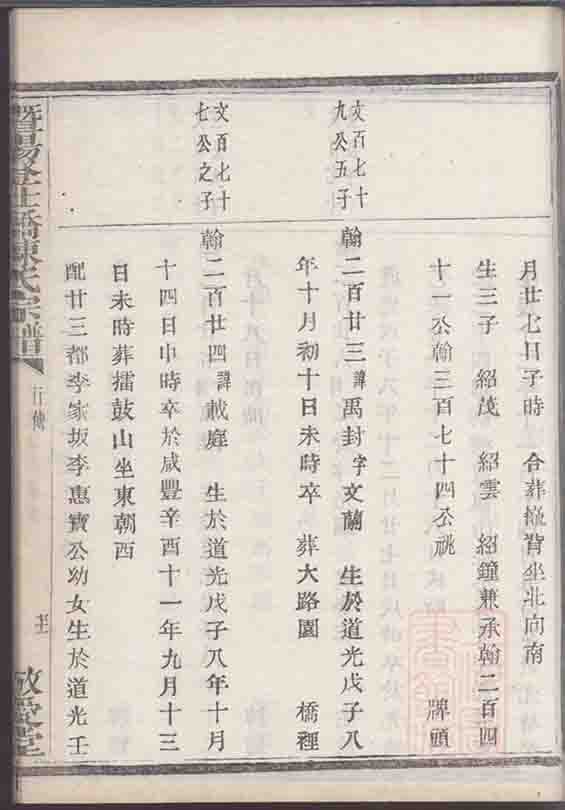 月廿七日子時　合葬嶺背坐北向南
生三子　紹茂　紹雲　紹鐘兼承翰二百四
十一公翰三百七十四公祧　牌頭
文百七十
九公五子
翰二百廿三諱禹封字文蘭　生於道光戊子八
年十月初十日未時卒　葬大路園　橋裡
文百七十
七公之子
翰二百廿四諱載庭　生於道光戊子八年十月
十四日申時卒於咸豐辛酉十一年九月十三
日未時葬擂鼓山坐東朝西
配廿三都李家坂李惠寶公幼女生於道光壬
暨陽　陳氏宗譜
行傳
敬愛堂